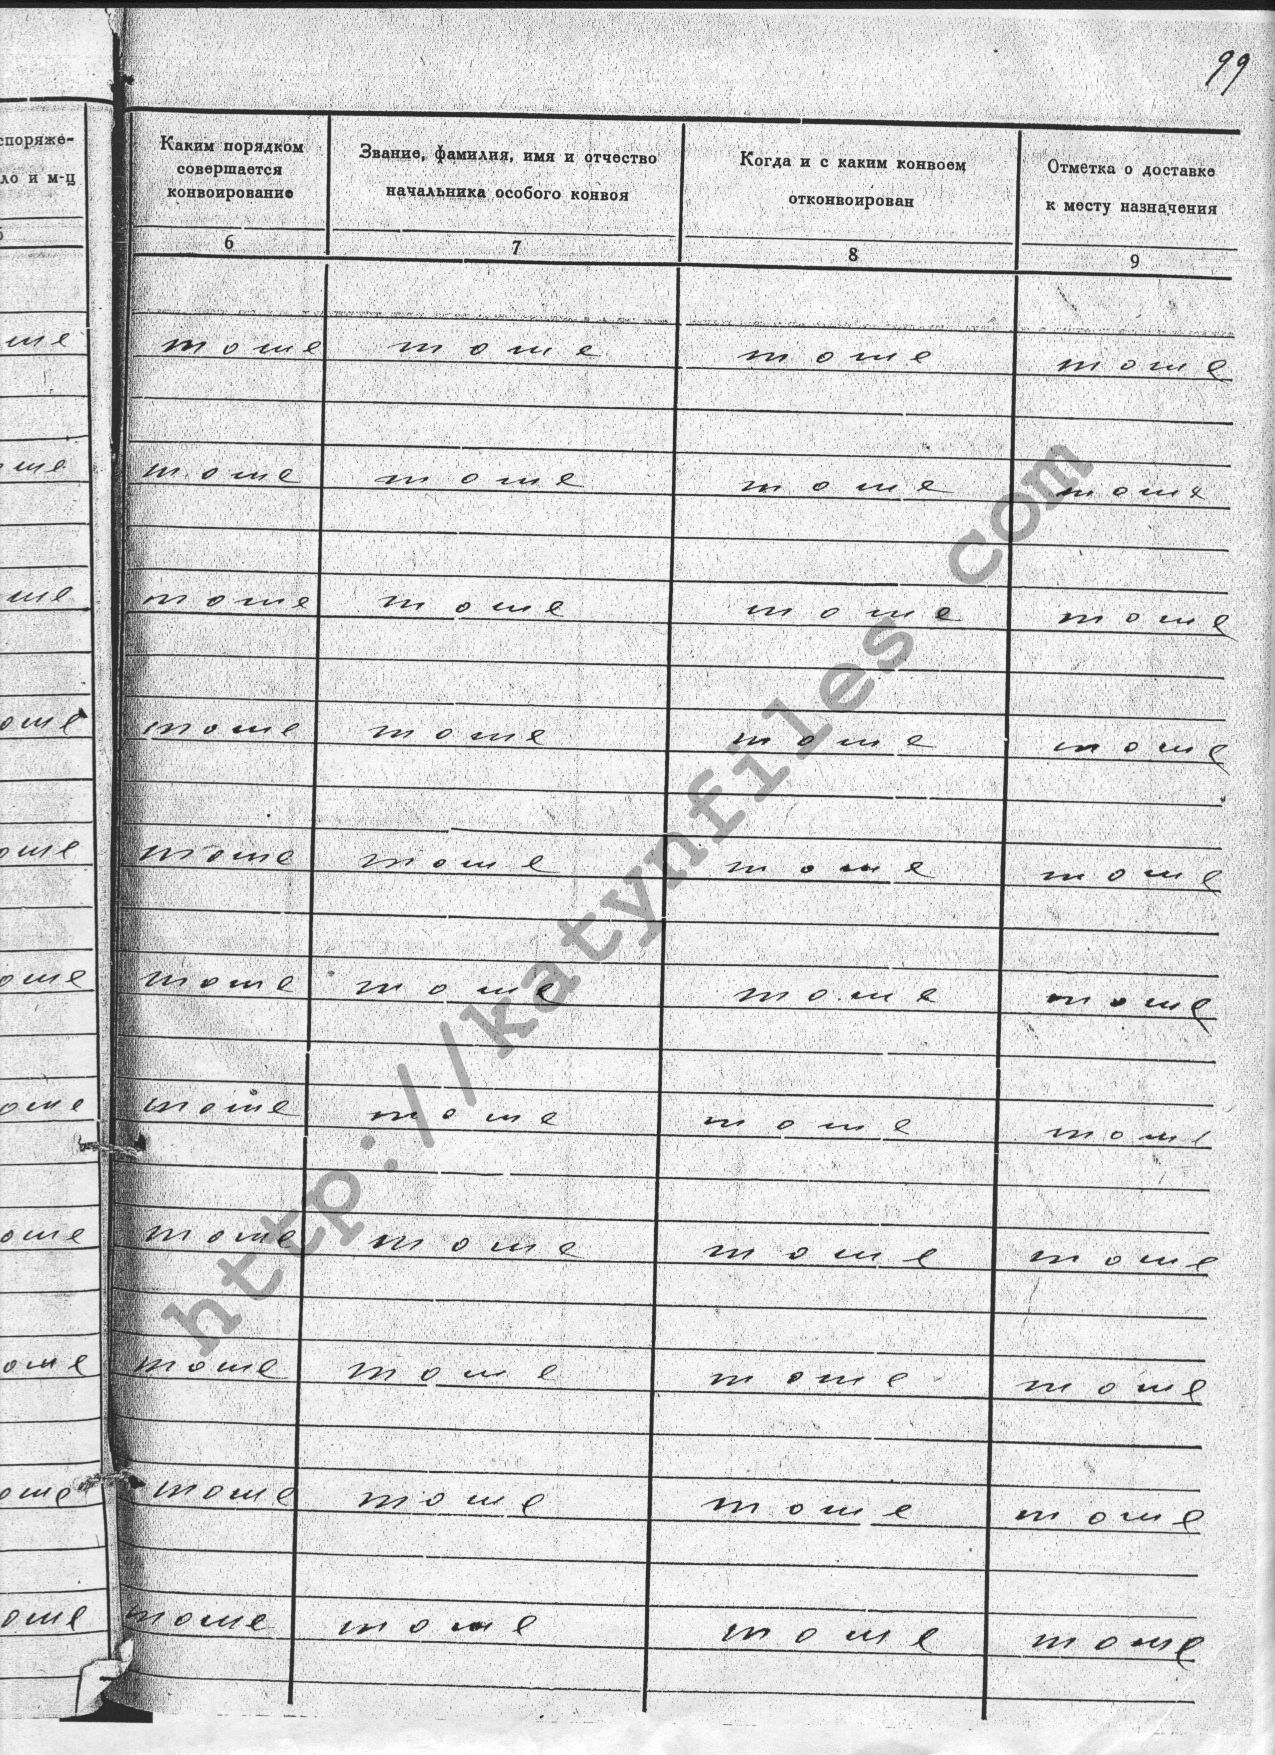 99
споряже-
ло и м-ц
Каким порядком
совершается
конвоирование
Звание, фамилия, имя и отчество
начальника особого конвоя
Когда и с каким конвоем
отконвоирован
Отметка о доставке
к месту назначения
6 7 8 9
оше тоше тоше тоше тоше
оше тоше тоше тоше тоше
оше тоше тоше тоше тоше
оше тоше тоше тоше тоше
оше тоше тоше тоше тоше
оше тоше тоше тоше тоше
оше тоше тоше тоше тоше
оше тоше тоше тоше тоше
оше тоше тоше тоше тоше
оше тоше тоше тоше тоше
оше тоше тоше тоше тоше
http://katynfiles com